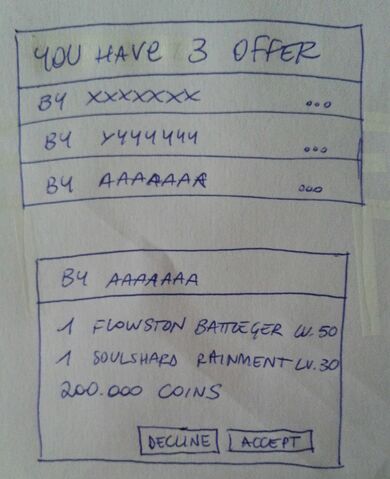 YOU HAVE 3 OFFER
BY XXXXXXX ...
BY YYYYYYY ...
BY AAAAAAA ...
BY AAAAAAA
1 FLOWSTON BATTLEGER LV.50
1 SOULSHARD RAINMENT LV.30
200.000 COINS
DECLINE ACCEPT